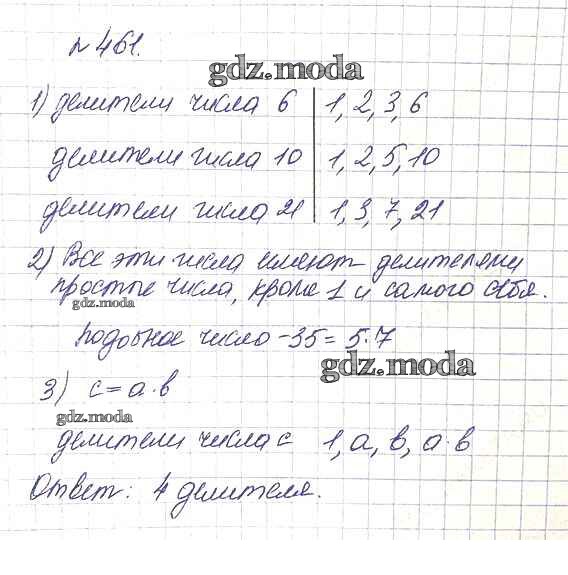 №461.
gdz.moda
1) делители числа 6 | 1, 2, 3, 6
делители числа 10 | 1, 2, 5, 10
делители числа 21 | 1, 3, 7, 21
2) Все эти числа имеют делителями
простые числа, кроме 1 и самого себя.
gdz.moda
Подобное число - 35 = 5·7
gdz.moda
3) c = a·b
gdz.moda
делители числа c 1, a, b, a·b
Ответ: 4 делителя.